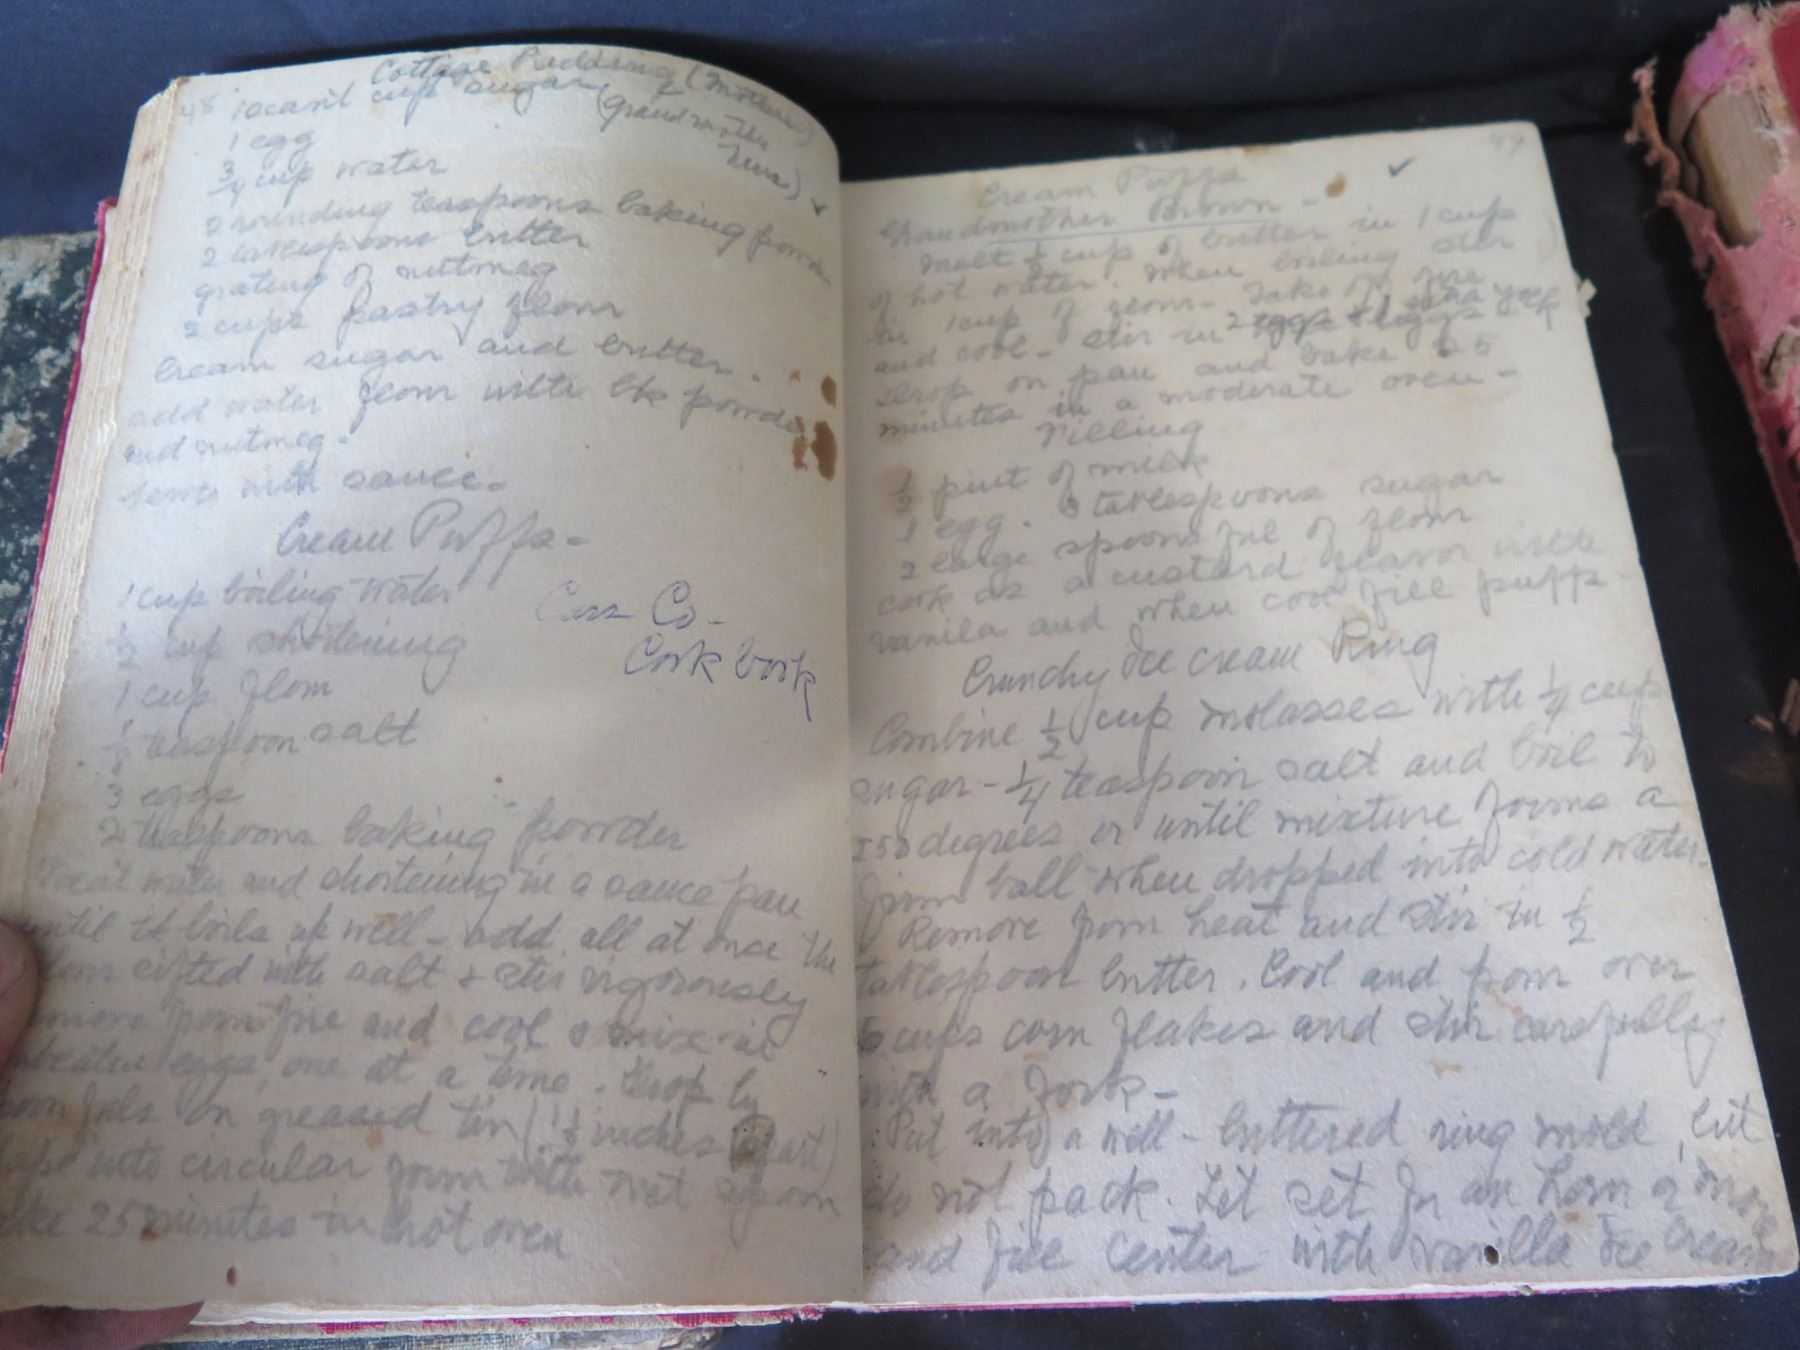 48
Cottage Pudding (Mothers)
1 scant cup sugar (Grandmother
1 egg
3/4 cup water
2 rounding teaspoons baking powder
2 tablespoons butter
grating of nutmeg
2 cups pastry flour
Cream sugar and butter.
add water flour with bk powder
and nutmeg.
Serve with sauce.
Cream Puffs -
1 cup boiling water
1/2 cup shortening
1 cup flour
1/8 teaspoon salt
3 eggs
2 teaspoons baking powder
Cass Co -
Cook book
Heat water and shortening in a sauce pan
until it boils up well - add all at once the
flour sifted with salt + stir vigorously
remove from fire and cool & mix in
unbeaten eggs, one at a time. Drop by
spoonfuls on greased tin (1 1/2 inches apart)
shape into circular form with wet spoon
Bake 25 minutes in hot oven
49
Cream Puffs
Grandmother Brown -
Melt 1/2 cup of butter in 1 cup
of hot water. When boiling stir
in 1 cup of flour - Take off fire
and cool - stir in 2 eggs +
Drop on pan and bake 25
minutes in a moderate oven -
Filling
1/2 pint of milk
1 egg. 3 tablespoons sugar
2 large spoons ful of flour
cook as a custard flavor with
vanila and when cool fill puffs -
Crunchy Ice cream Ring
Combine 1/2 cup molasses with 1/4 cup
sugar - 1/4 teaspoon salt and boil to
250 degrees or until mixture forms a
firm ball when dropped into cold water.
Remove from heat and stir in 1/2
tablespoon butter. Cool and pour over
cups corn flakes and stir carefully
with a fork -
Put into a well - buttered ring mold, but
do not pack. Let set for an hour or more
and fill center with vanilla Ice Cream